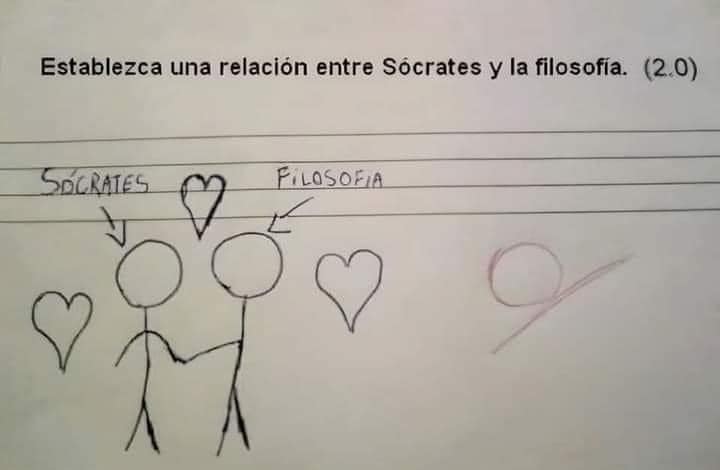 Establezca una relación entre Sócrates y la filosofía. (2.0)
SÓCRATES
FiLOSOFiA